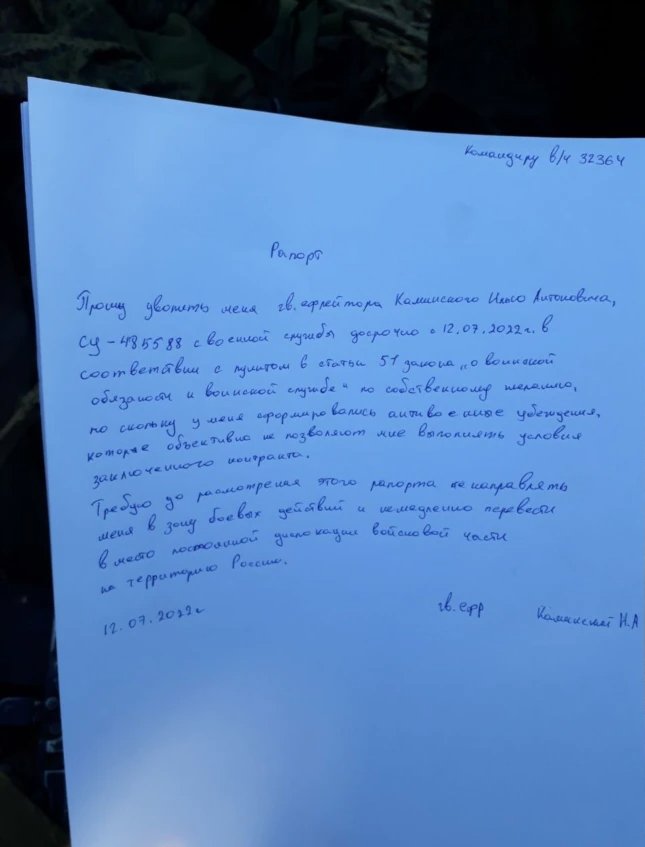 Командиру в/ч 32364
Рапорт
Прошу уволить меня гв.ефрейтора Каминского Илью Антоновича,
СУ-485588 с военной службы досрочно с 12.07.2022г. в
соответствии с пунктом в статьи 51 закона „о воинской
обязаности и воинской службе" по собственному желанию,
по скольку у меня сформировались антивоенные убеждения,
которые объективно не позволяют мне выполнять условия
заключенного контракта.
Требую до рассмотрения этого рапорта не направлять
меня в зону боевых действий и немедленно перевести
в место постоянной дислокации войсковой части
на территорию России.
12.07.2022г
гв.ефр Каминский И.А